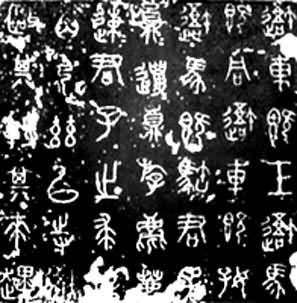 吾車既工吾馬
既同吾車既好
吾馬既駓君子
員邋員斿麀鹿
速君子之求
角弓茲以寺
敺其特其來趩